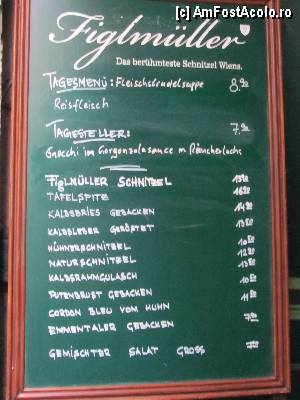 (c) AmFostAcolo.ro
Figlmüller
Das berühmteste Schnitzel Wiens.
TAGESMENÜ: Fleischstrudelsuppe 8.90
Reisfleisch
TAGESTELLER: 7.90
Gnocchi in Gorgonzolasauce m. Räucherlachs
FIGLMÜLLER SCHNITZEL
TAFELSPITZ
KALBSBRIES GEBACKEN
KALBSLEBER GERÖSTET
HÜHNERSCHNITZEL
NATURSCHNITZEL
KALBSRAHMGULASCH
PUTENBRUST GEBACKEN
CORDON BLEU VOM HUHN
EMMENTALER GEBACKEN
GEMISCHTER SALAT GROSS